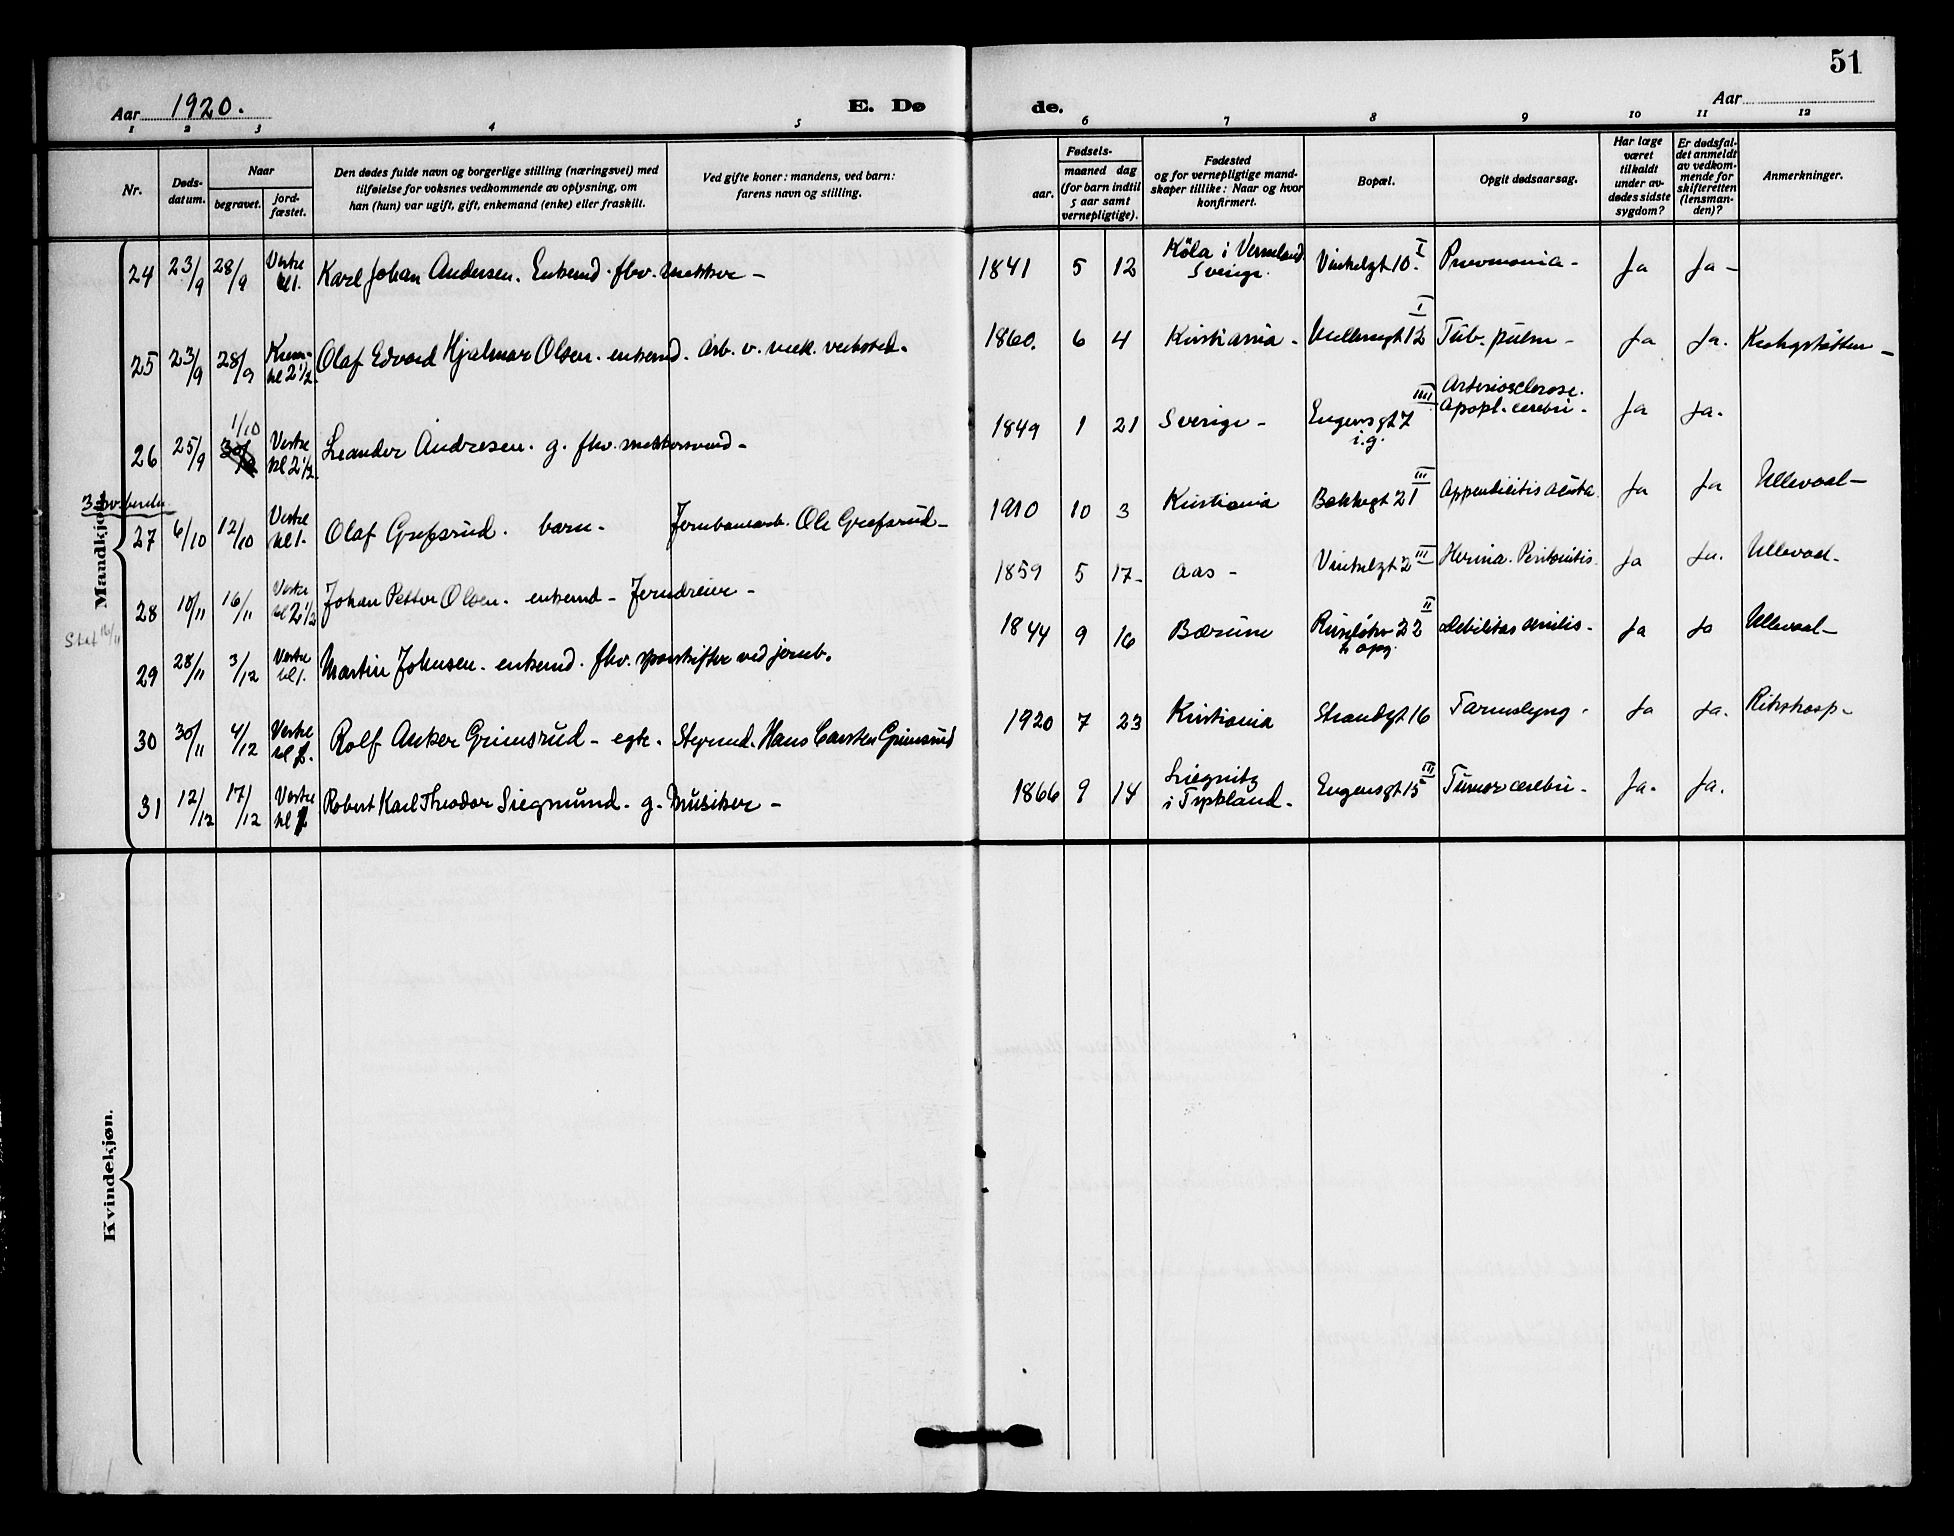 51
Aar 1920.
E. Dø
de.
Aar
1 2 3 4 5 6 7 8 9 10 11 12
Nr.
Døds-
datum.
Naar
begravet.
jord-
fæstet.
Den dødes fulde navn og borgerlige stilling (næringsvei) med
tilføielse for voksnes vedkommende av oplysning, om
han (hun) var ugift, gift, enkemand (enke) eller fraskilt.
Ved gifte koner: mandens, ved barn:
farens navn og stilling.
Fødsels-
aar.
maaned dag
(for barn indtil
5 aar samt
vernepligtige).
Fødested
og for vernepligtige mand-
skaper tillike: Naar og hvor
konfirmert.
Bopæl.
Opgit dødsaarsag.
Har læge
været
tilkaldt
under av-
dødes sidste
sygdom?
Er dødsfal-
det anmeldt
av vedkom-
mende for
skifteretten
(lensman-
den)?
Anmerkninger.
Mandkjøn.
24 23/9 28/9 Vestre kl 1. Karl Johan Andersen. Enkemd. fhv. snekker - 1841 5 12 Köla i Vermeland Sverige. Vinkelgt 10 I Pneumonia - Ja Ja -
25 23/9 28/9 kl 2 1/2. Olaf Edvard Hjalmar Olsen. enkemd. Arb. v. mek. verksted. 1860. 6 4 Kristiania - 12 I Tub. pulm - Ja Ja.
26 25/9 30/9 1/10 Vestre kl 2 1/2. Leander Andresen. g. fhv. snekkersvend - 1849 1 21 Sverige - Eugensgt 7 IIII i.g. Arteriosclerose. Apopl. cerebri - Ja Ja.
27 6/10 12/10 Vestre kl 1. Olaf Grefsrud. barn - Jernbanearb. Ole Grefsrud - 1910 10 3 Kristiania Bakkegt 21 III Appendicitis acuta. Ja Ja Ullevaal -
28 10/11 16/11 Vestre kl 2 1/2 Johan Petter Olsen. enkemd - Jerndreier - 1859 5 17 - Aas - Vinkelgt 2 III Hernia. Peritonitis. Ja Ja. Ullevaal -
Stat 16/11
29 28/11 3/12 Vestre kl 1. Martin Johnsen. enkemd. fhv. sporskifter ved jernb. 1844 9 16 Bærum 22 II Debilitas senilis - Ja Ja Ullevaal -
30 30/11 4/12 Vestre kl Rolf Anker Grimsrud - egte. Styrmd. Hans Carsten Grimsrud 1920 7 23 Kristiania Strandgt 16 Tarmslyng - Ja Ja. Rikshosp -
31 12/12 17/12 Vestre kl Robert Karl Theodor Siegmund. g. Musiker - 1866 9 14 Liegnitz i Tyskland. Eugensgt 15 III Tumor cerebri - Ja. Ja.
Kvindekjøn.